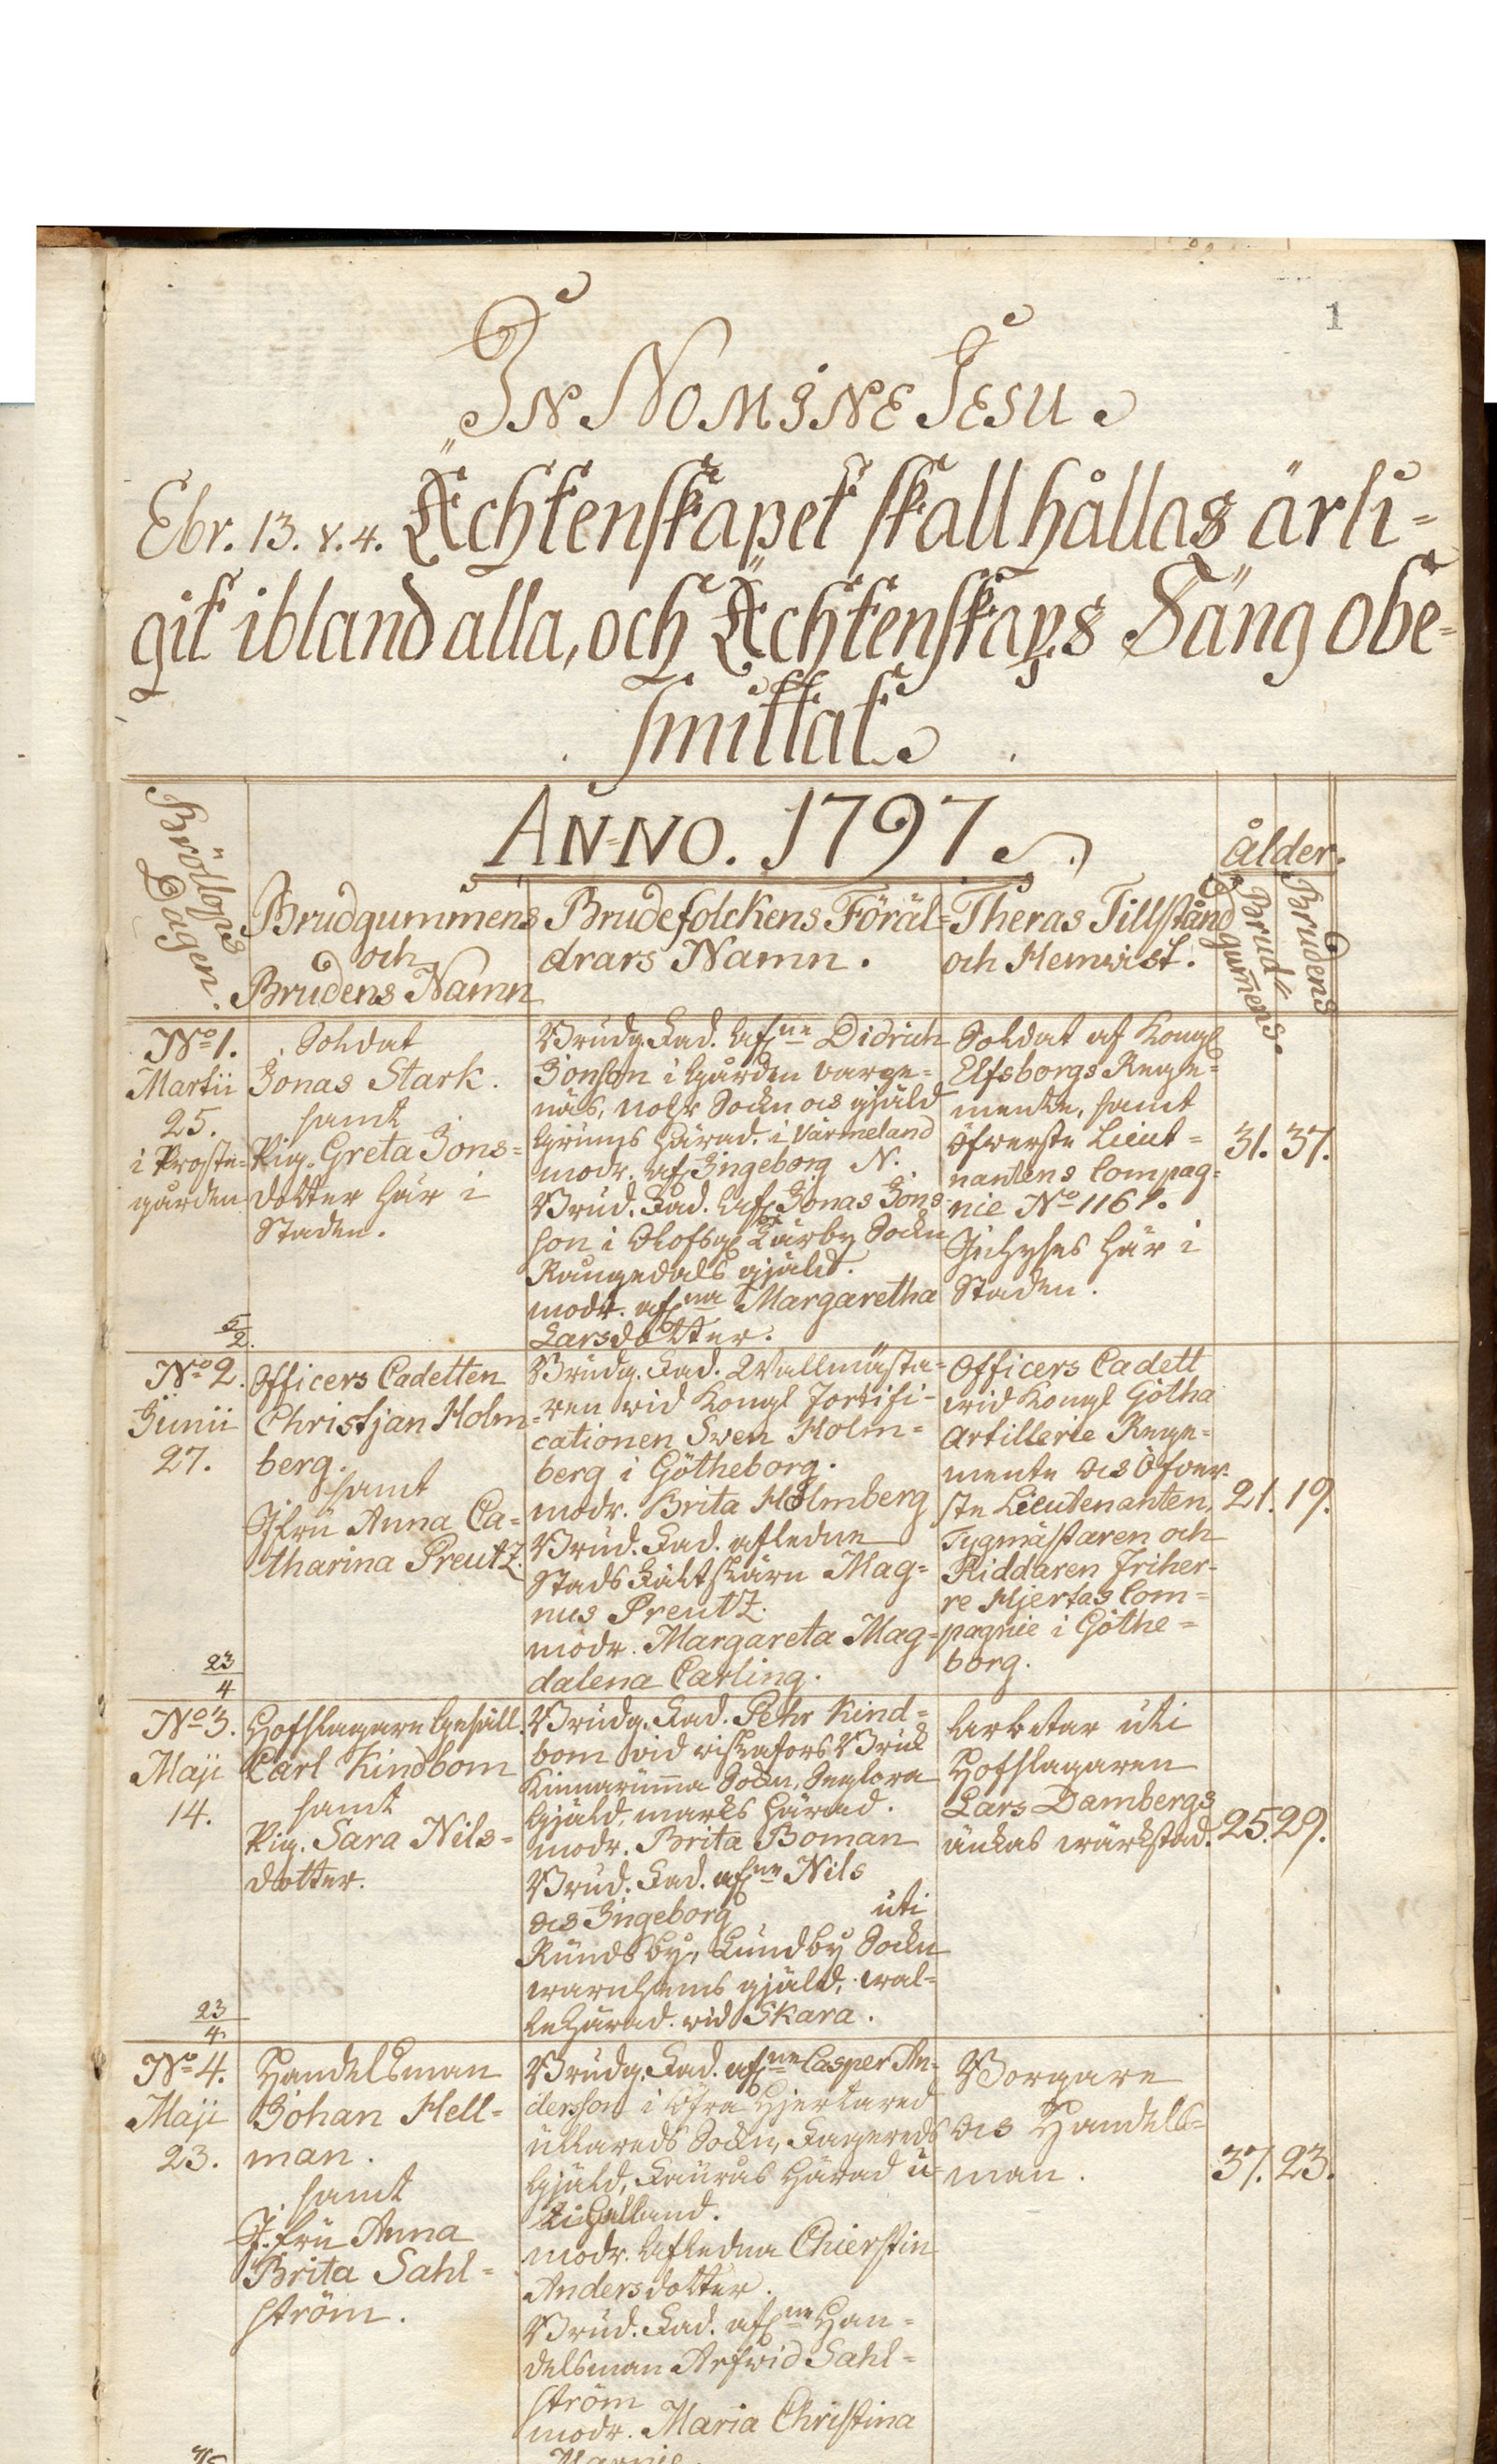 1
In Nomine Jesu.
Ebr. 13. v. 4. Ächtenskapet skall hållas ärli=
git ibland alla, och Ächtenskaps Säng obe=
smittat.
Anno. 1797.
Bröllops
Dagen.
Brudgummens
och
Brudens Namn
Brudefolckens Föräl=
drars Namn.
Theras Tillstånd
och Hemwist.
ålder.
Brud=
gum̄ens.
Brudens
No 1.
Martii
25.
i Proste=
gården
5/2.
Soldat
Jonas Stark.
samt
Pig. Greta Jons=
dotter här i
Staden.
Brudg. Fad. afl. ne Didrich
Jonson i Gården
näs, Sockn och gjäld
Grums Härad. i Värmeland
modr. afl. Ingeborg N.
Brud. Fad. afl. Jonas Jons=
son i Kärby Sockn
Rångedals gjäld.
modr. afl. na Margaretha
Larsdotter.
Soldat af Kongl
Elfsborgs Rege=
mente, samt
Öfwerste Lieut=
nantens Compag=
nie No 116
Inhyses här i
Staden.
31. 37.
No 2.
Junii
27.
23/4
Officers Cadetten
Christjan Holm=
berg.
samt
Jfru Anna Ca=
tharina Preutz.
Brudg. Fad. Wallmästa=
ren wid Kongl Fortifi=
cationen Swen Holm=
berg i Götheborg.
modr. Brita Holmberg
Brud. Fad. afledne
Stads Fältskärn Mag=
nus Preutz.
modr. Margareta Mag=
dalena Carling.
Officers Cadett
wid Kongl Götha
Artillerie Rege=
mente och Öfver=
ste Lieutenanten,
Tygmästaren och
Riddaren Friher=
re Hjertas Com=
pagnie i Göthe=
borg.
21. 19.
No 3.
Maji
14.
23/4
Hofslagare Gesäll.
Carl Kindbom
samt
Pig. Sara Nils=
dotter.
Brudg. Fad. Pehr Kind=
bom wid Bruk
Kinnarumma Sockn, Seglora
Gjäld, marks Härad.
modr. Brita Boman
Brud. Fad. afl. ne Nils
och Ingeborg uti
Lundby Sockn
warnhems gjäld, wal=
le Härad. wid Skara.
Arbetar uti
Hofslagaren
Lars Dambergs
änkas wärkstad.
25. 29.
No 4.
Maji
23.
Handelsman
Johan Hell=
man.
samt
J.fru Anna
Brita Sahl=
ström.
Brudg. Fad. afl. ne Casper An=
dersson i Öfra Hjertared
ullareds Sockn, Fagereds
Gjäld, Faurås Härad u=
ti Halland.
modr. Afledna Chierstin
Andersdotter.
Brud. Fad. afl. ne Han=
delsman Arfwid Sahl=
ström
modr. Maria Christina
Borgare
och Handels=
man.
37. 23.